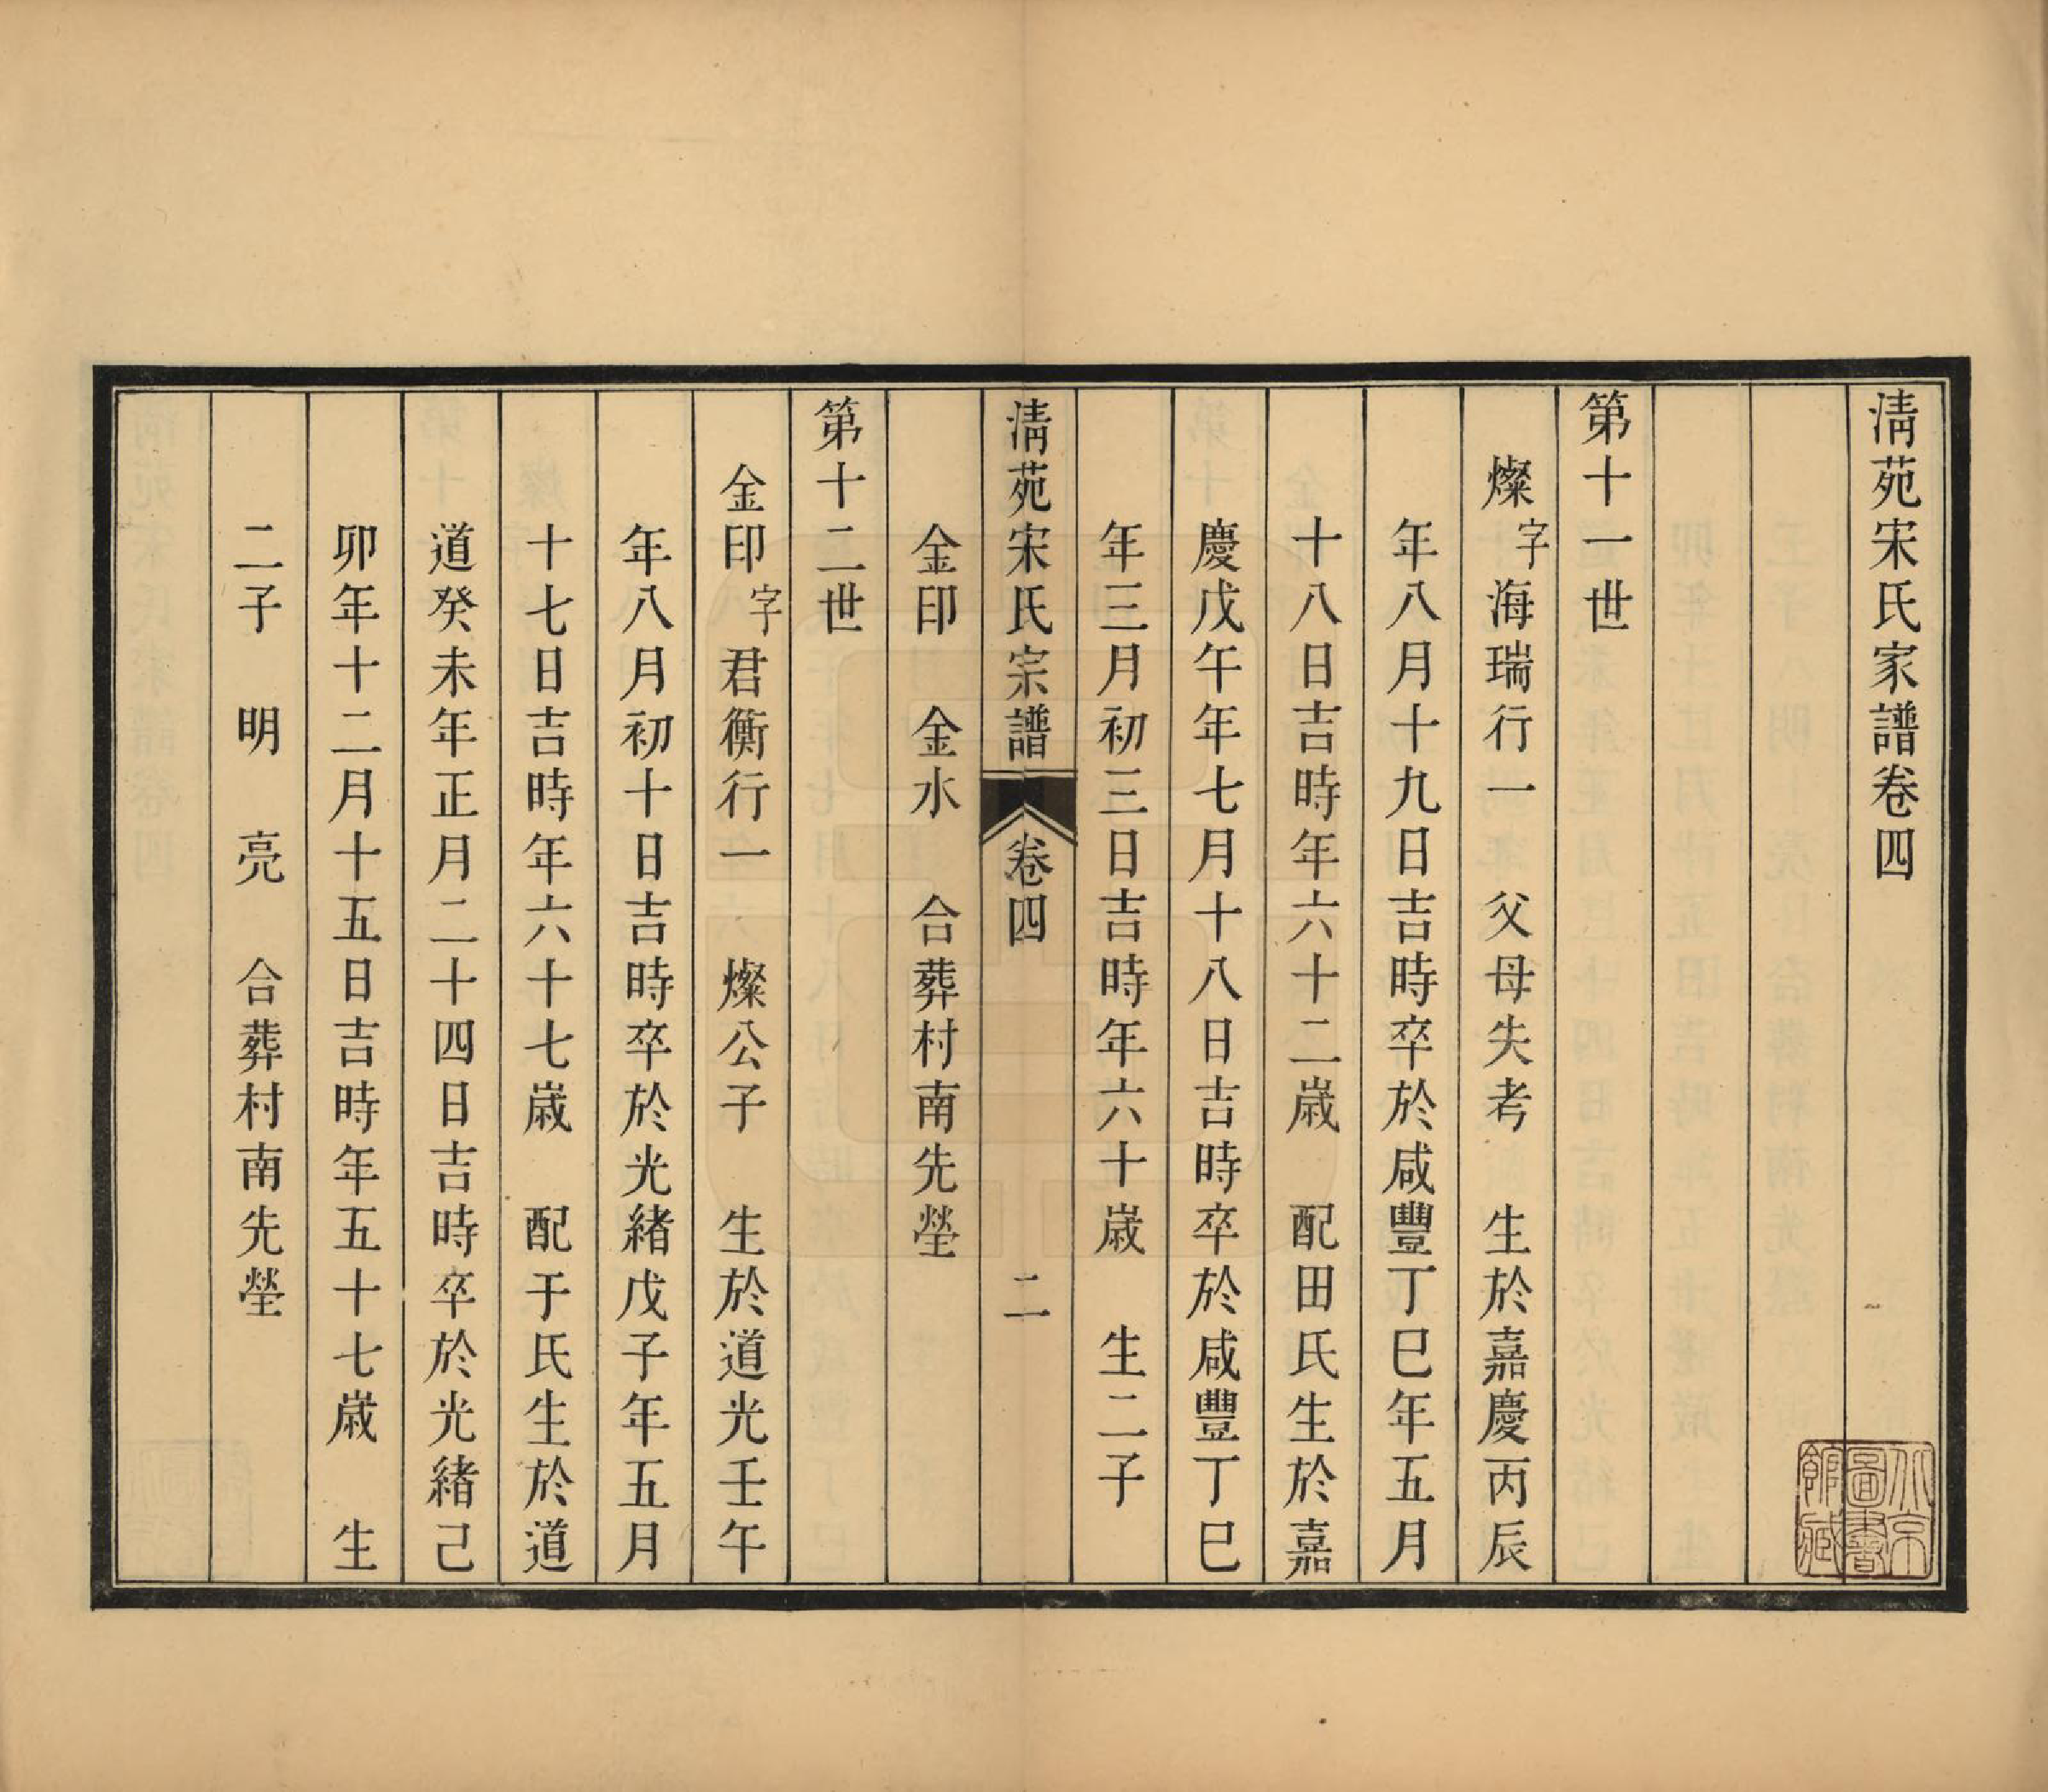 清苑宋氏家譜卷四
第十一世
燦字海瑞行一　父母失考　生於嘉慶丙辰
年八月十九日吉時卒於咸豐丁巳年五月
十八日吉時年六十二歲　配田氏生於嘉
慶戊午年七月十八日吉時卒於咸豐丁巳
年三月初三日吉時年六十歲　生二子
金印　金水　合葬村南先塋
清苑宋氏宗譜　卷四　二
第十二世
金印字君衡行一　燦公子　生於道光壬午
年八月初十日吉時卒於光緒戊子年五月
十七日吉時年六十七歲　配于氏生於道
道癸未年正月二十四日吉時卒於光緒己
卯年十二月十五日吉時年五十七歲　生
二子　明　亮　合葬村南先塋
北京圖書館藏